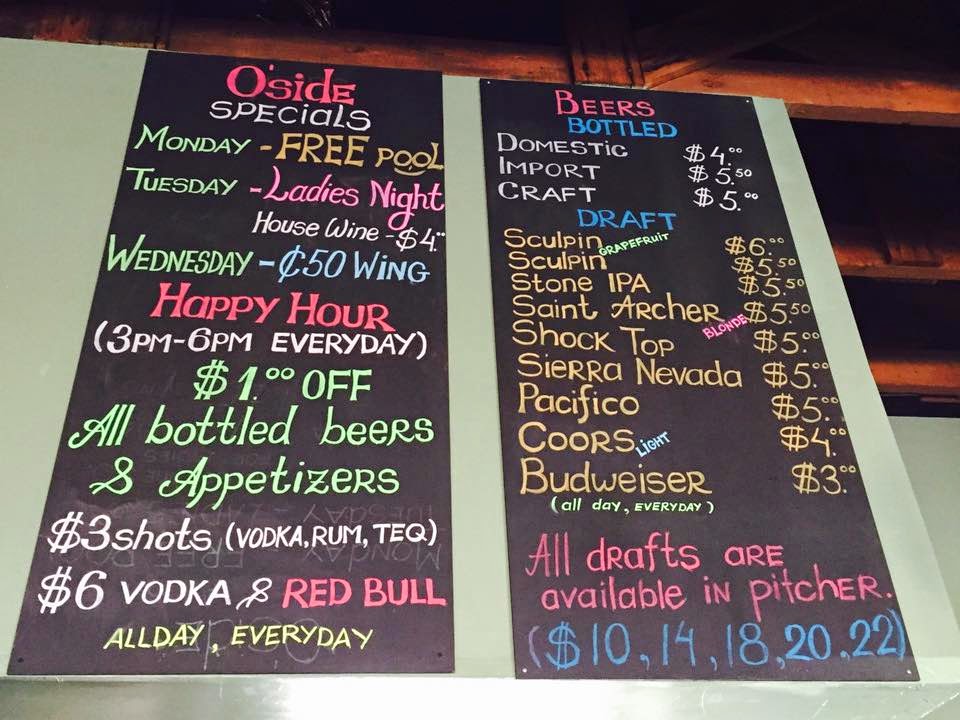 O'side
SPECIALS
MONDAY - FREE POOL
TUESDAY - Ladies Night
House Wine - $4.00
WEDNESDAY - ¢50 WING
HAPPY HOUR
(3PM-6PM EVERYDAY)
$1.00 OFF
All bottled beers
& Appetizers
$3 shots (VODKA, RUM, TEQ)
$6 VODKA & RED BULL
ALL DAY, EVERYDAY
BEERS
BOTTLED
DOMESTIC $4.00
IMPORT $5.50
CRAFT $5.00
DRAFT
Sculpin GRAPEFRUIT $6.00
Sculpin $5.50
Stone IPA $5.50
Saint Archer BLONDE $5.50
Shock Top $5.00
Sierra Nevada $5.00
Pacifico $5.00
Coors LIGHT $4.00
Budweiser $3.00
(all day, EVERYDAY)
All drafts ARE
available IN pitcher.
($10, 14, 18, 20, 22)